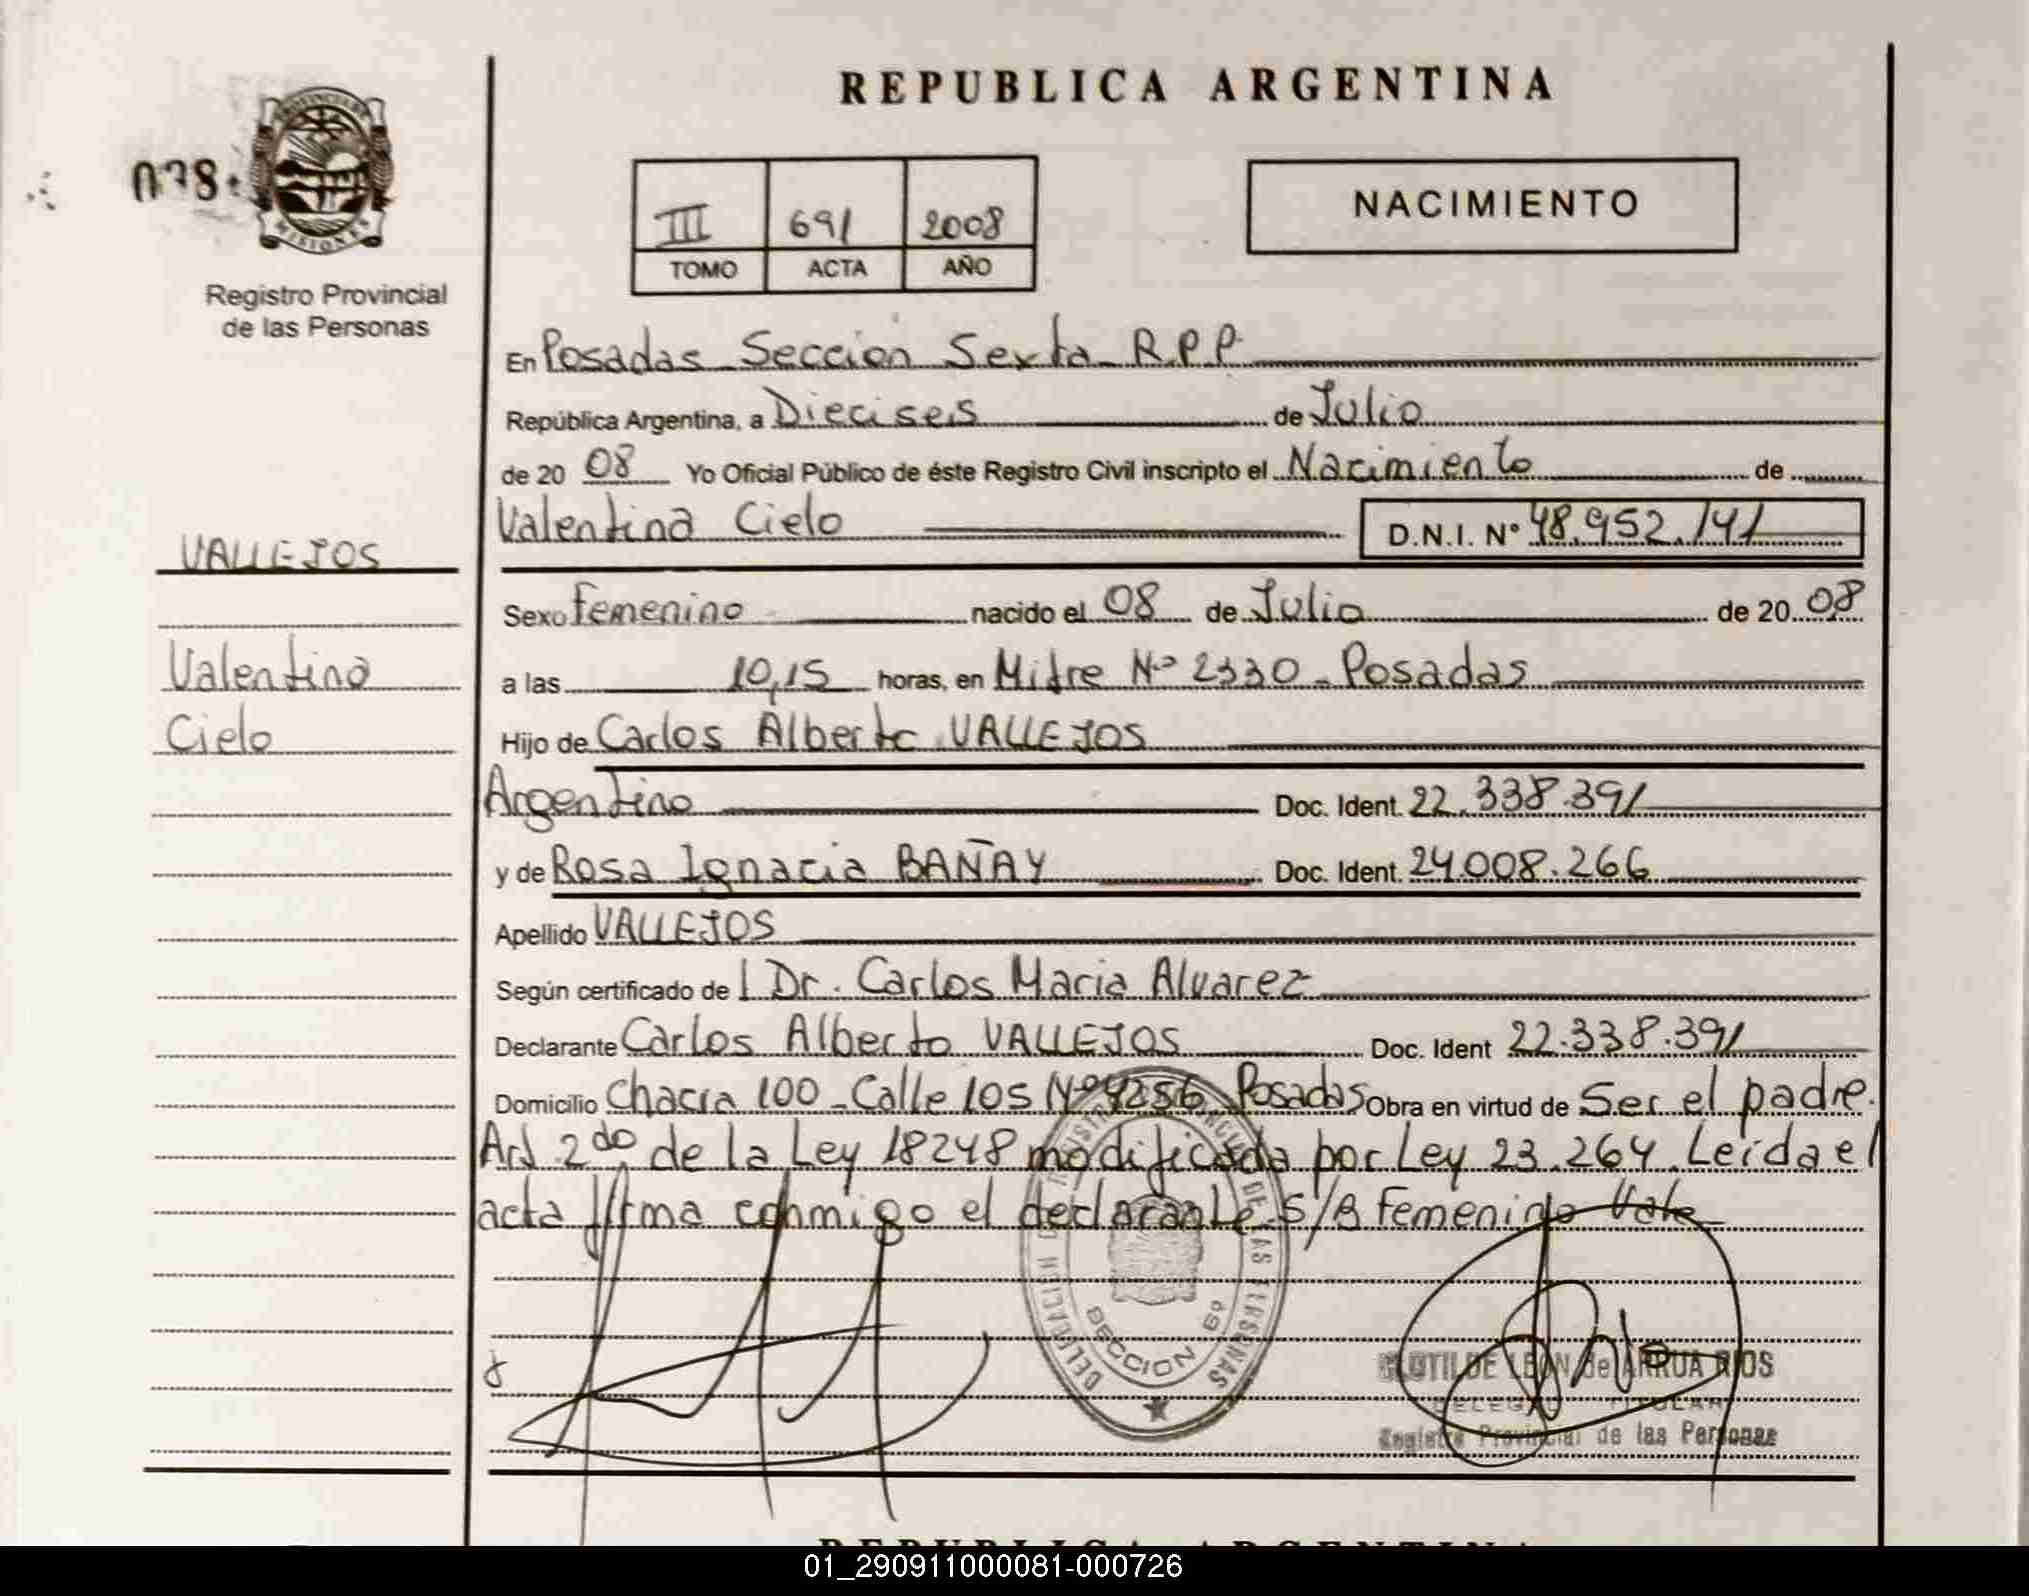 REPUBLICA ARGENTINA
PROVINCIA
MISIONES
Registro Provincial
de las Personas
III 691 2008
TOMO ACTA AÑO
NACIMIENTO
En Posadas Sección Sexta R.P.P.
República Argentina, a Dieciseis de Julio
de 20 08 Yo Oficial Público de éste Registro Civil inscripto el Nacimiento de
Valentina Cielo D.N.I. Nº 48.952.141
VALLEJOS
Sexo Femenino nacido el 08 de Julio de 20 08
Valentina
a las 10,15 horas, en Mitre Nº 2330 - Posadas
Cielo
Hijo de Carlos Alberto VALLEJOS
Argentino Doc. Ident. 22.338.391
y de Rosa Ignacia BAÑAY Doc. Ident. 24.008.266
Apellido VALLEJOS
Según certificado de l Dr. Carlos Maria Alvarez
Declarante Carlos Alberto VALLEJOS Doc. Ident 22.338.391
Domicilio Chacra 100 - Calle 105 Nº 4256 Posadas Obra en virtud de Ser el padre.
Art 2do de la Ley 18248 modificada por Ley 23.264. Leída el
acta firma conmigo el declarante S/B Femenino Vale
DELEGACION DEL REGISTRO PROVINCIAL DE LAS PERSONAS
SECCION 6º
CLOTILDE LEON de ARRUA RIOS
DELEGADA TITULAR
Registro Provincial de las Personas
REPUBLICA ARGENTINA
01_290911000081-000726